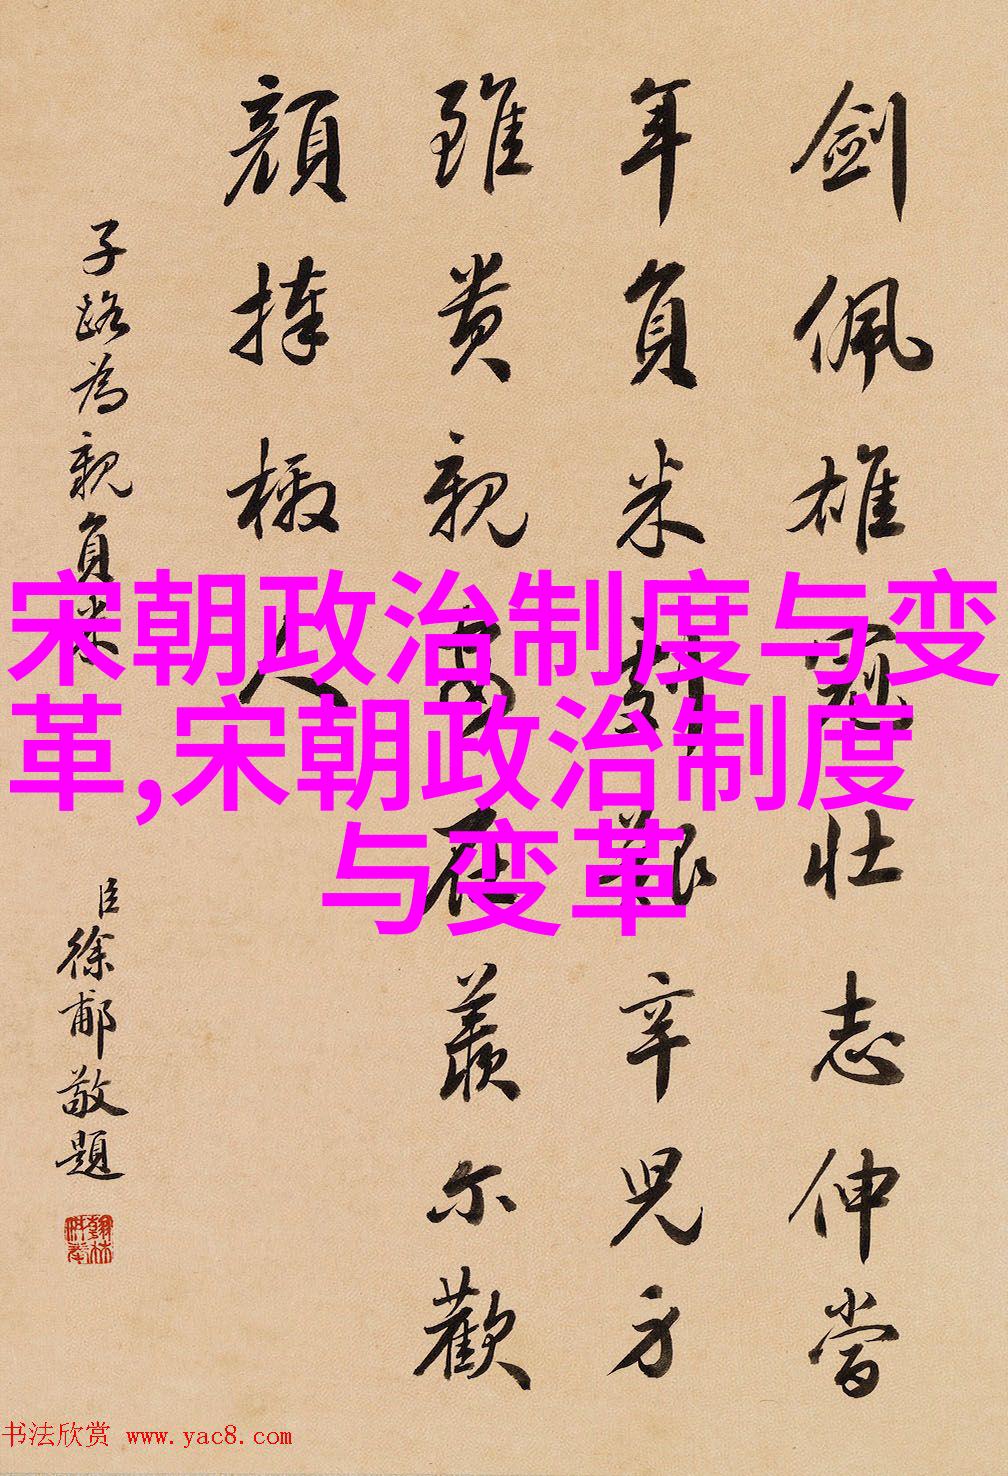 劍佩雄冠壯志伸當
年負米艱辛兒身
雖貴親在羨尔歡
顏捧檄人
子路為親負米
臣徐郙敬題
宋朝政治制度与变
革,宋朝政治制度
与变革
书法欣赏 www.yac8.com